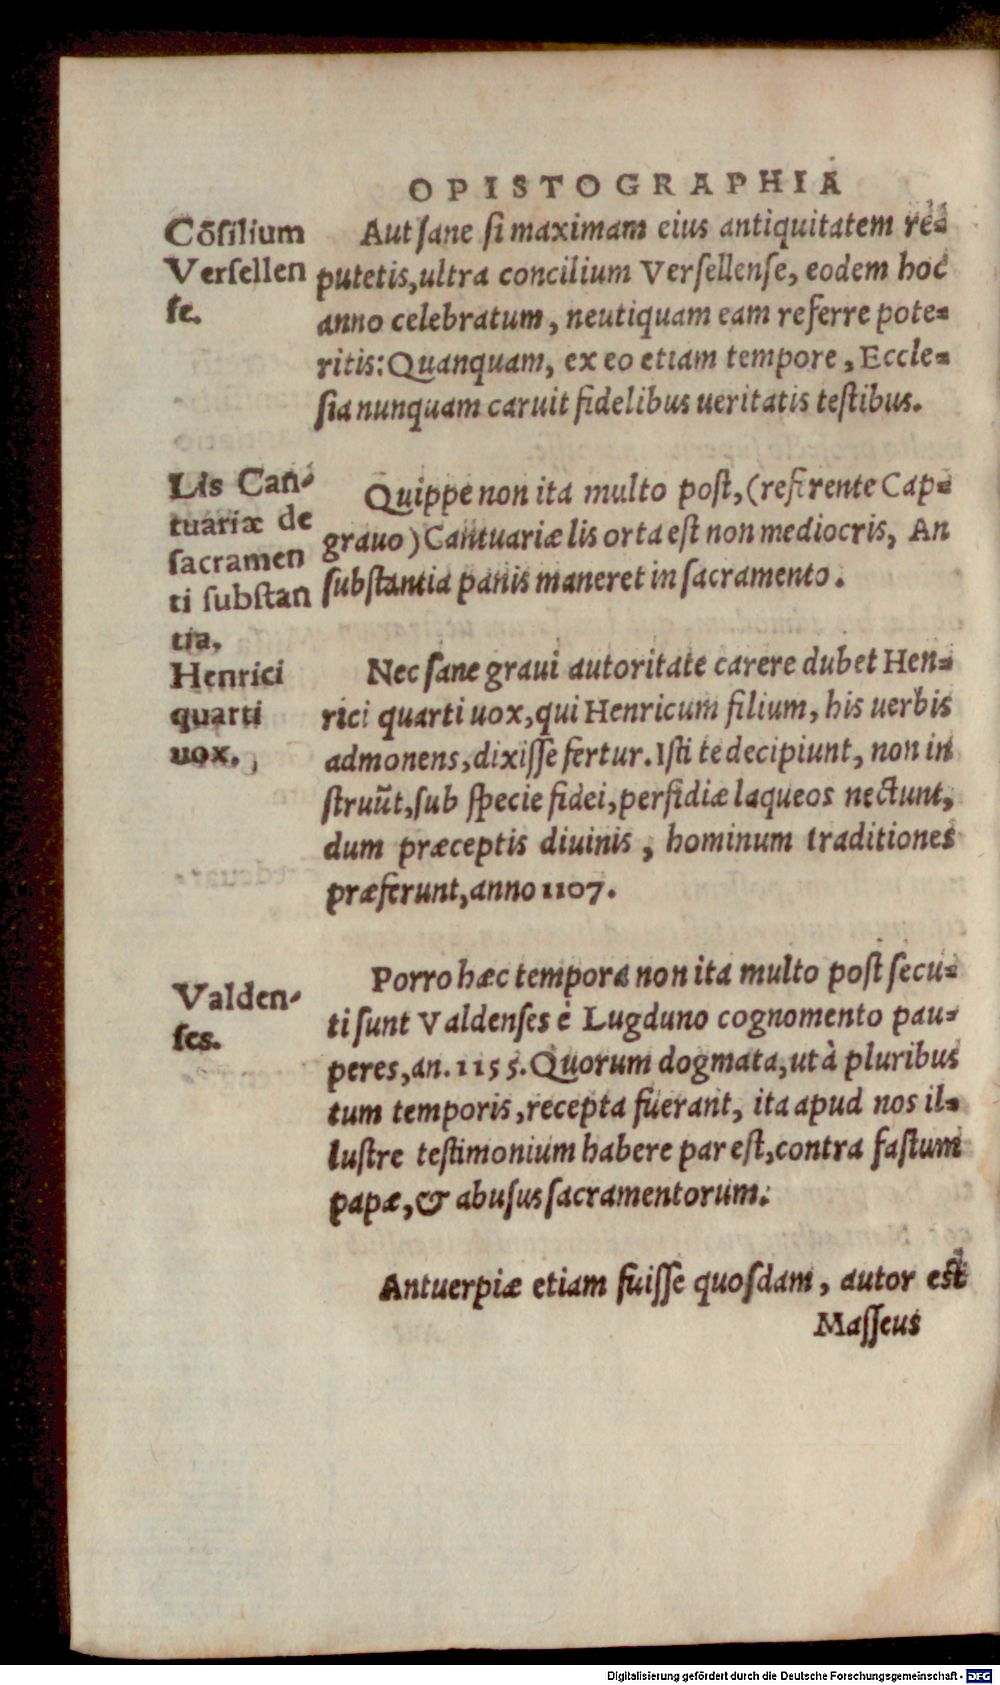 OPISTOGRAPHIA
Cõsilium
Versellen
se.
Aut sane si maximam eius antiquitatem re-
putetis, ultra concilium Versellense, eodem hoc
anno celebratum, neutiquam eam referre pote-
ritis: Quanquam, ex eo etiam tempore, Eccle-
sia nunquam caruit fidelibus ueritatis testibus.
Lis Can-
tuariæ de
sacramen
ti substan
tia.
Quippe non ita multo post, (referente Cap-
grauo) Cantuariæ lis orta est non mediocris, An
substantia panis maneret in sacramento.
Henrici
quarti
uox.
Nec sane graui autoritate carere dubet Hen-
rici quarti uox, qui Henricum filium, his uerbis
admonens, dixisse fertur. Isti te decipiunt, non in
struũt, sub specie fidei, perfidiæ laqueos nectunt,
dum præceptis diuinis, hominum traditiones
præferunt, anno 1107.
Valden-
ses.
Porro hæc tempora non ita multo post secu-
ti sunt Valdenses è Lugduno cognomento pau-
peres, an. 1155. Quorum dogmata, ut à pluribus
tum temporis, recepta fuerant, ita apud nos il-
lustre testimonium habere par est, contra fastum
papæ, & abusus sacramentorum.
Antuerpiæ etiam fuisse quosdam, autor est
Masseus
Digitalisierung gefördert durch die Deutsche Forschungsgemeinschaft - DFG